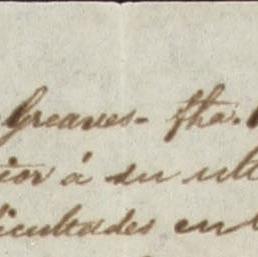 Greaves - fha.
rior á su ult
icultades en l